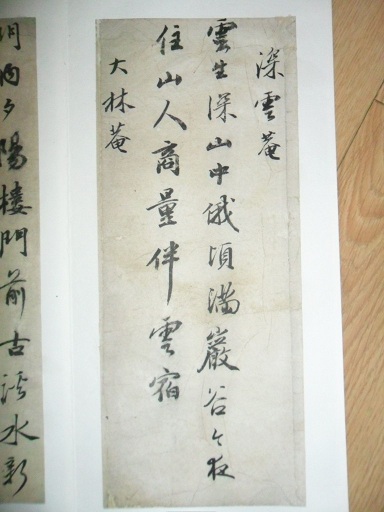 深雲菴
雲生深山中俄頃滿巖谷今夜
住山人商量伴雲宿
大林菴
夕陽樓門前古溪水新